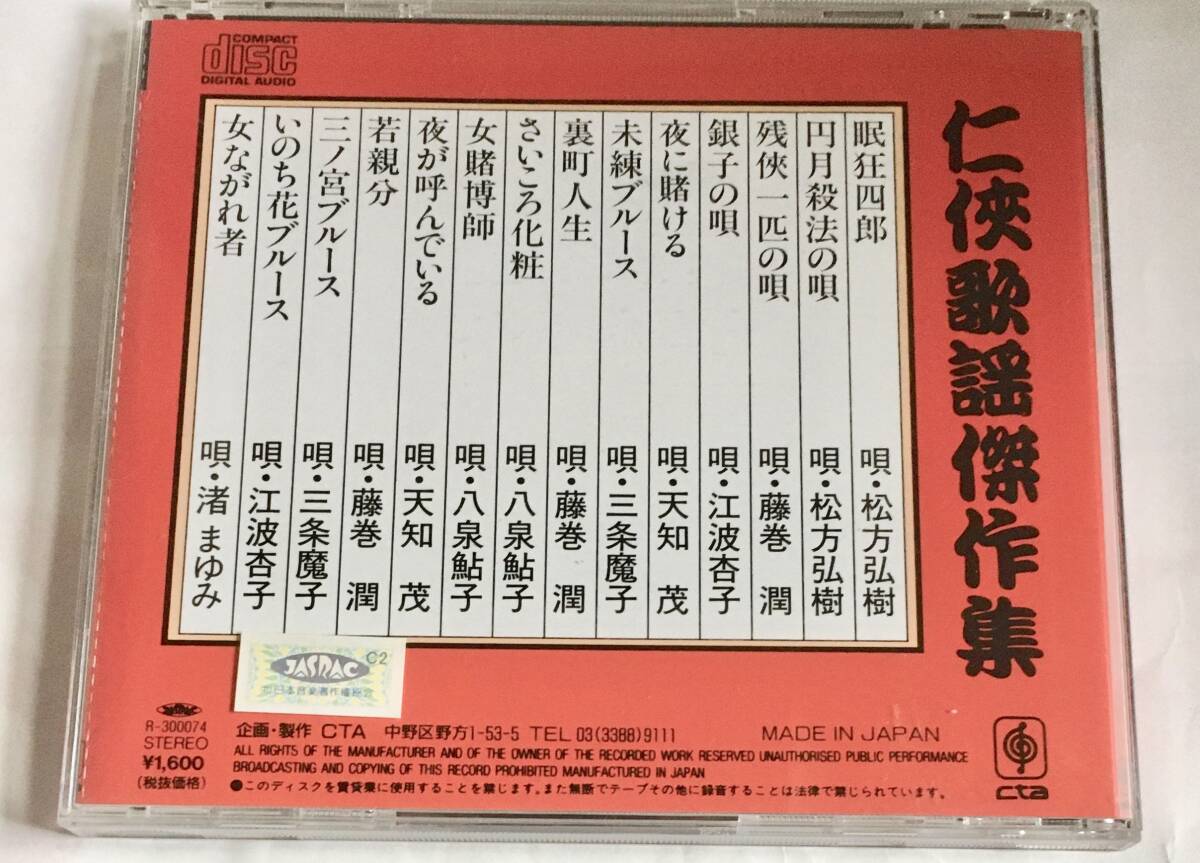 仁侠歌謡傑作集
COMPACT
disc
DIGITAL AUDIO
眠狂四郎 唄・松方弘樹
円月殺法の唄 唄・松方弘樹
残侠一匹の唄 唄・藤巻 潤
銀子の唄 唄・江波杏子
夜に賭ける 唄・天知 茂
未練ブルース 唄・三条魔子
裏町人生 唄・藤巻 潤
さいころ化粧 唄・八泉鮎子
女賭博師 唄・八泉鮎子
夜が呼んでいる 唄・天知 茂
若親分 唄・藤巻 潤
三ノ宮ブルース 唄・三条魔子
いのち花ブルース 唄・江波杏子
女ながれ者 唄・渚 まゆみ
JASRAC C2
日本音楽著作権協会
R-300074
STEREO
¥1,600
(税抜価格)
企画・製作 CTA 中野区野方1-53-5 TEL 03(3388)9111 MADE IN JAPAN
ALL RIGHTS OF THE MANUFACTURER AND OF THE OWNER OF THE RECORDED WORK RESERVED UNAUTHORISED PUBLIC PERFORMANCE
BROADCASTING AND COPYING OF THIS RECORD PROHIBITED MANUFACTURED IN JAPAN
●このディスクを賃貸業に使用することを禁じます。また無断でテープその他に録音することは法律で禁じられています。
cta